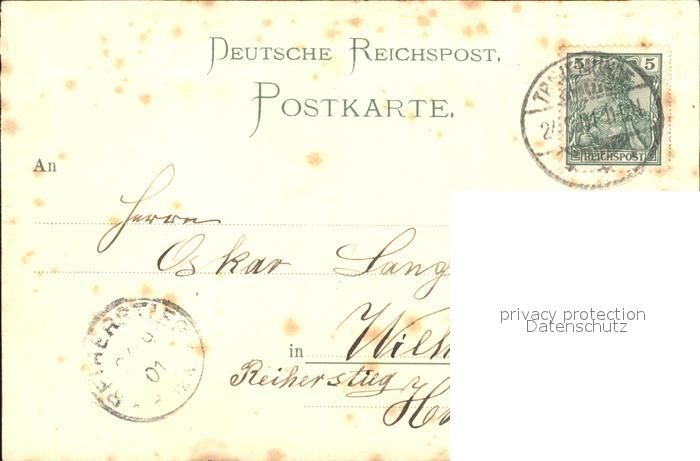 DEUTSCHE REICHSPOST.
POSTKARTE.
5 5
REICHSPOST
An
Herrn
Oskar Lang
privacy protection
Datenschutz
REIHERSTIEG
01
in Wilh
Reiherstieg
Ha